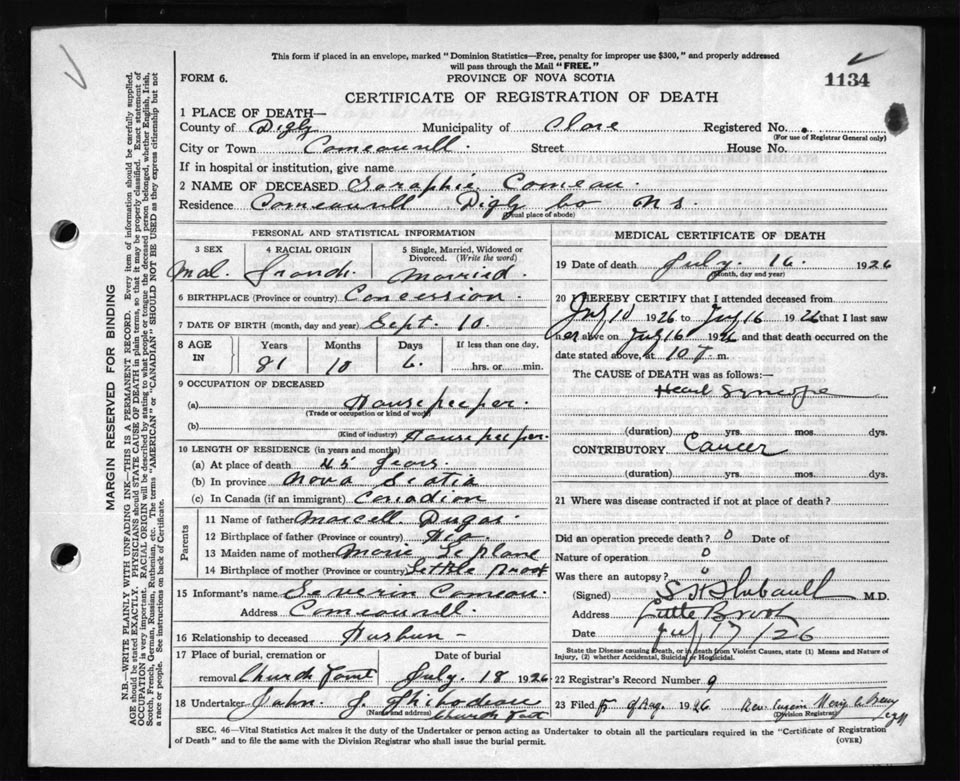 This form if placed in an envelope, marked "Dominion Statistics—Free, penalty for improper use $300," and properly addressed
will pass through the Mail "FREE."
FORM 6. PROVINCE OF NOVA SCOTIA 1134
CERTIFICATE OF REGISTRATION OF DEATH
1 PLACE OF DEATH—
County of Digby Municipality of Clare Registered No.
(For use of Registrar General only)
City or Town Comeauvill Street House No.
If in hospital or institution, give name
2 NAME OF DECEASED Saraphie Comeau.
Residence Comeauvill Digby Co N S.
(Usual place of abode)
PERSONAL AND STATISTICAL INFORMATION
3 SEX 4 RACIAL ORIGIN 5 Single, Married, Widowed or
Divorced. (Write the word)
Mal. Franch. Married.
6 BIRTHPLACE (Province or country) Concession.
7 DATE OF BIRTH (month, day and year) Sept. 10.
8 AGE IN Years Months Days If less than one day,
81 10 6. hrs. or min.
9 OCCUPATION OF DECEASED
(a) Housekeeper.
(Trade or occupation or kind of work)
(b) Housekeeper.
(Kind of industry)
10 LENGTH OF RESIDENCE (in years and months)
(a) At place of death 45 years.
(b) In province Nova Scotia
(c) In Canada (if an immigrant) Canadian
Parents
11 Name of father Marcell. Dugas.
12 Birthplace of father (Province or country)
13 Maiden name of mother Marie Leblanc
14 Birthplace of mother (Province or country) Little Brook
15 Informant's name Severin Comeau.
Address Comeauvill.
16 Relationship to deceased Husbun -
17 Place of burial, cremation or Date of burial
removal Church Point July. 18 1926
18 Undertaker John. J. Thibodeau
(Name and address) Church Point
MEDICAL CERTIFICATE OF DEATH
19 Date of death July. 16. 1926
(Month, day and year)
20 I HEREBY CERTIFY that I attended deceased from
July 10 1926 to July 16 1926 that I last saw
her alive on July 16 1926 and that death occurred on the
date stated above, at 10 P. m.
The CAUSE of DEATH was as follows:—
Heart Syncope
(duration) yrs. mos. dys.
CONTRIBUTORY Cancer
(duration) yrs. mos. dys.
21 Where was disease contracted if not at place of death?
Did an operation precede death? 0 Date of
Nature of operation 0
Was there an autopsy? 0
(Signed) M.D.
Address Little Brook
Date July 17/26
State the Disease causing Death, or in death from Violent Causes, state (1) Means and Nature of
Injury, (2) whether Accidental, Suicidal or Homicidal.
22 Registrar's Record Number 9
23 Filed 5 of Aug. 1926
(Division Registrar)
SEC. 46—Vital Statistics Act makes it the duty of the Undertaker or person acting as Undertaker to obtain all the particulars required in the "Certificate of Registration
of Death" and to file the same with the Division Registrar who shall issue the burial permit. (OVER)
MARGIN RESERVED FOR BINDING
N.B.—WRITE PLAINLY WITH UNFADING INK—THIS IS A PERMANENT RECORD. Every item of information should be carefully supplied.
AGE should be stated EXACTLY. PHYSICIANS should STATE CAUSE OF DEATH in plain terms, so that it may be properly classified. Exact statement of
OCCUPATION is very important. RACIAL ORIGIN will be described by stating to what people or tongue the deceased person belonged, whether English, Irish,
Scotch, French, German, Russian, Ruthenian, etc. The terms "AMERICAN" or "CANADIAN" SHOULD NOT BE USED as they express citizenship but not
a race or people. See instructions on back of Certificate.